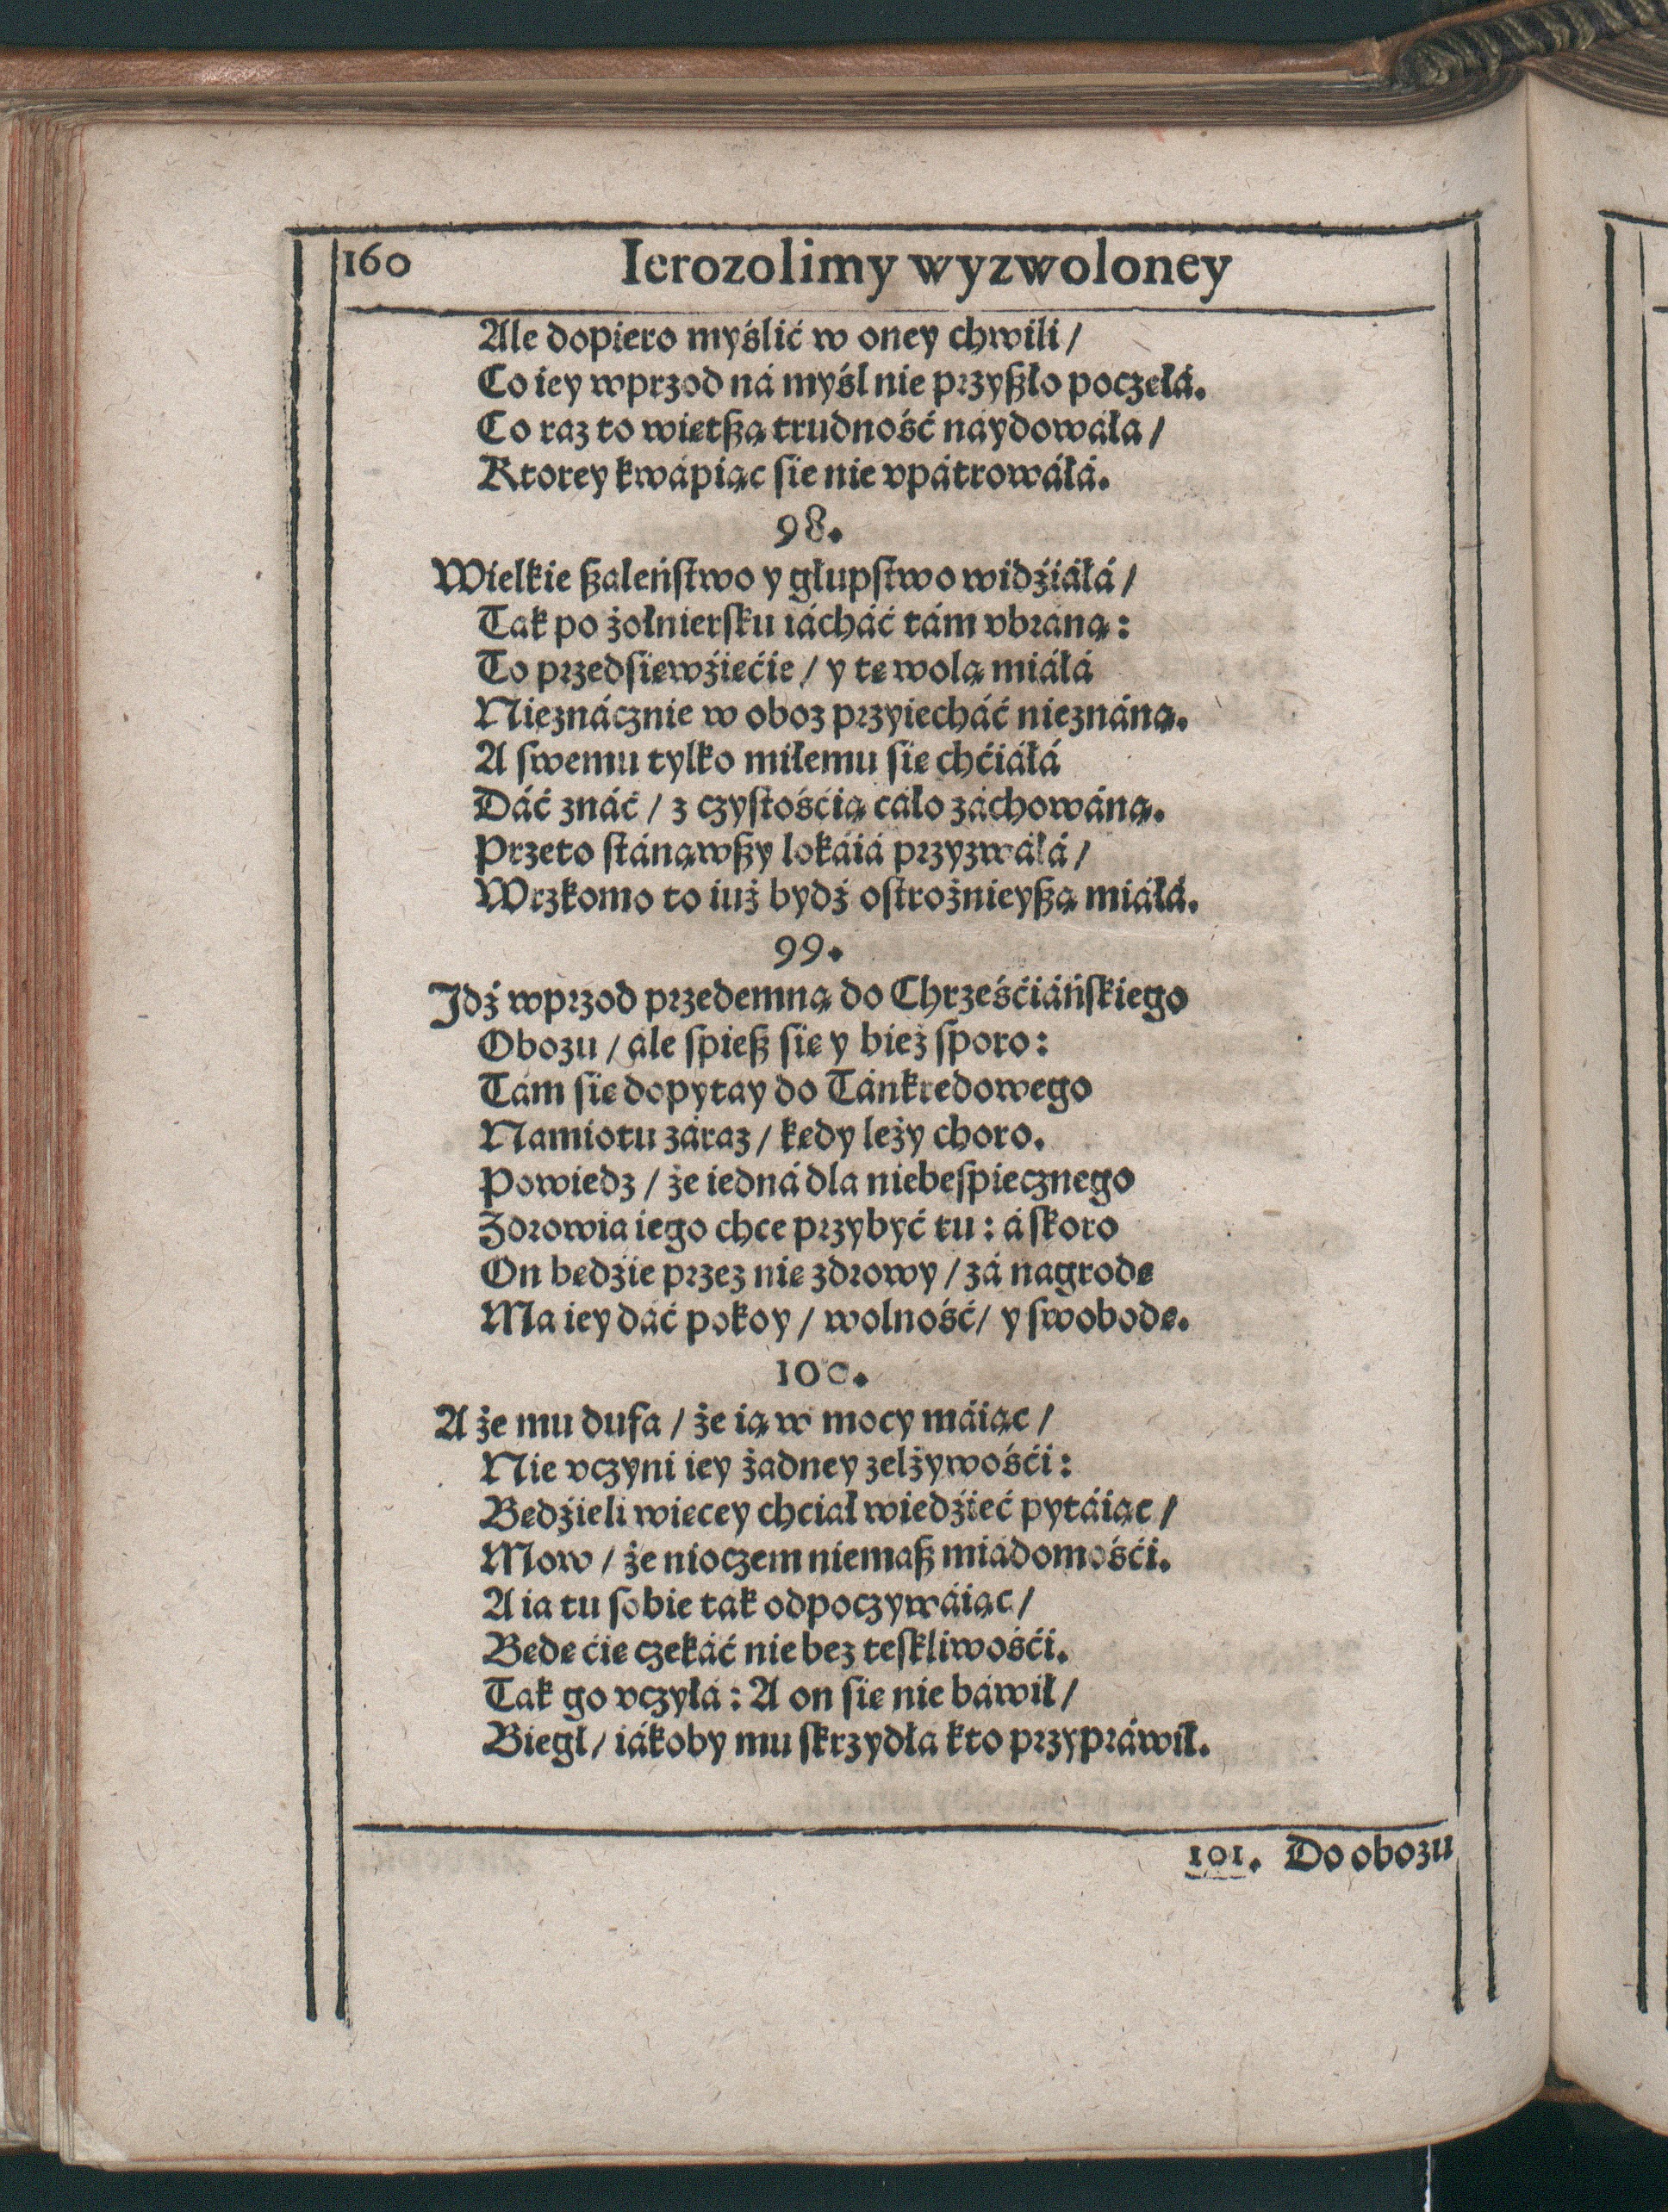 160 Ierozolimy wyzwoloney
Ale dopiero myślić w oney chwili /
Co iey wprzod ná myśl nie przyßło poczęłá.
Co raz to więtßą trudność náydowáła /
Ktorey kwápiąc się nie vpátrowáłá.
98.
Wielkie ßaleństwo y głupstwo widźiáłá /
Tak po żołniersku iácháć tám vbráną:
To przedsięwźięćie / y tę wolą miáłá
Nieznácznie w oboz przyiecháć nieznáną.
A swemu tylko miłemu się chćiáłá
Dáć znáć / z czystośćią cáło záchowáną.
Przeto stánąwßy lokáiá przyzwáłá /
Wrzkomo to iuż bydź ostrożnieyßą miáłá.
99.
Jdź wprzod przedemną do Chrześćiáńskiego
Obozu / ále spieß się y bież sporo:
Tám się dopytay do Tánkredowego
Namiotu záraz / kędy leży choro.
Powiedz / że iedná dla niebespiecznego
Zdrowia iego chce przybyć tu: á skoro
On będźie przez nię zdrowy / zá nagrodę
Ma iey dáć pokoy / wolność / y swobodę.
100.
A że mu dufa / że ią w mocy máiąc /
Nie vczyni iey żadney zelżywośći:
Będźieli więcey chciał wiedźieć pytáiąc /
Mow / że nioczem niemaß miádomośći.
A ia tu sobie tak odpoczywáiąc /
Będę ćię czekáć nie bez teskliwośći.
Tak go vczyłá: A on się nie báwił /
Biegł / iákoby mu skrzydła kto przypráwił.
101. Do obozu